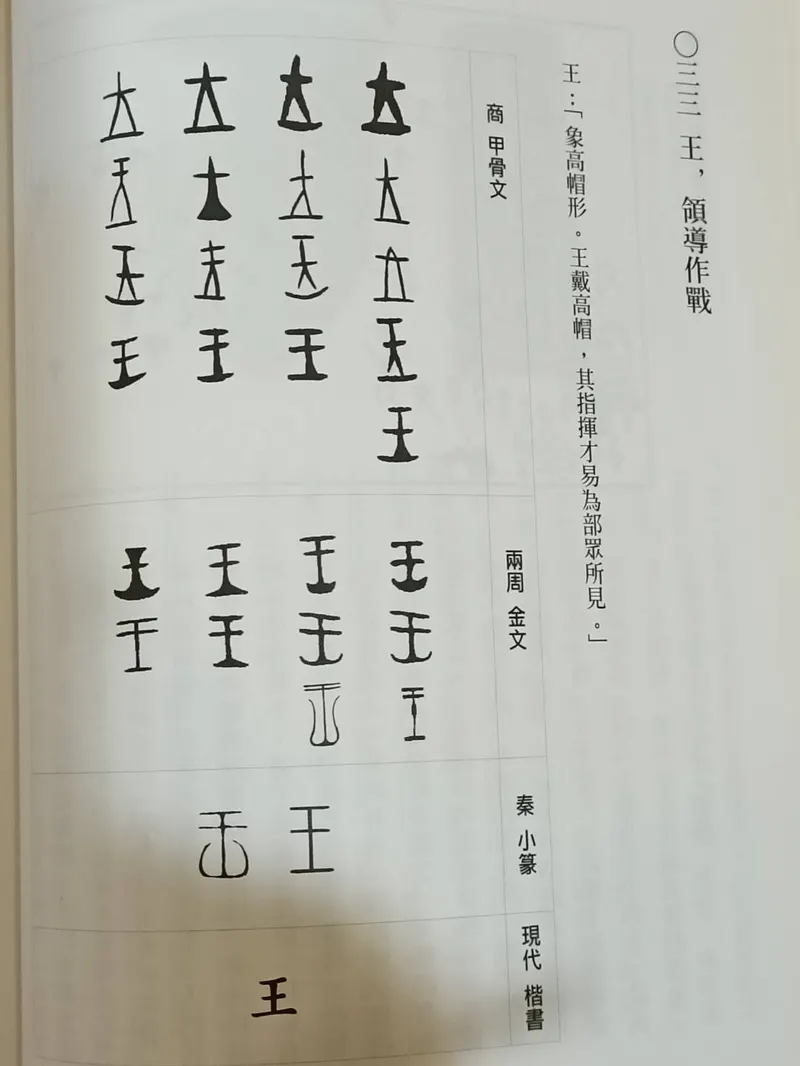 〇三三 王，領導作戰
王：「象高帽形。王戴高帽，其指揮才易為部眾所見。」
商 甲骨文
兩周 金文
秦 小篆
現代 楷書
王